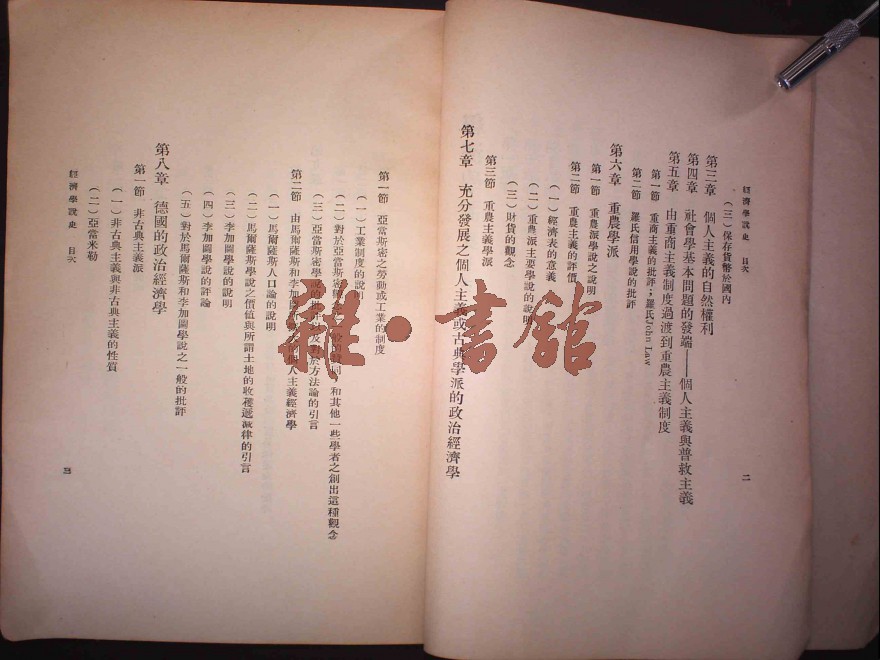 經濟學說史　目次
二
（三）保存貨幣於國內
第三章　個人主義的自然權利
第四章　社會學基本問題的發端——個人主義與普救主義
第五章　由重商主義制度過渡到重農主義制度
第一節　重商主義的批評；羅氏John Law
第二節　羅氏信用學說的批評
第六章　重農學派
第一節　重農派學說之說明
第二節　重農主義的評價
（一）經濟表的意義
（二）重農派主要學說的說明
（三）財貨的觀念
第三節　重農主義學派
第七章　充分發展之個人主義或古典學派的政治經濟學
第一節　亞當斯密之勞動或工業的制度
（一）工業制度的說明
（二）對於亞當斯密 和其他一些學者之創出這種觀念
（三）亞當斯密學說的批評及對於方法論的引言
第二節　由馬爾薩斯和李加圖所 的個人主義經濟學
（一）馬爾薩斯人口論的說明
（二）馬爾薩斯學說之價值與所謂土地的收穫遞減律的引言
（三）李加圖學說的說明
（四）李加圖學說的評論
（五）對於馬爾薩斯和李加圖學說之一般的批評
第八章　德國的政治經濟學
第一節　非古典主義派
（一）非古典主義與非古典主義的性質
（二）亞當米勒
經濟學說史　目次
三
雜·書館